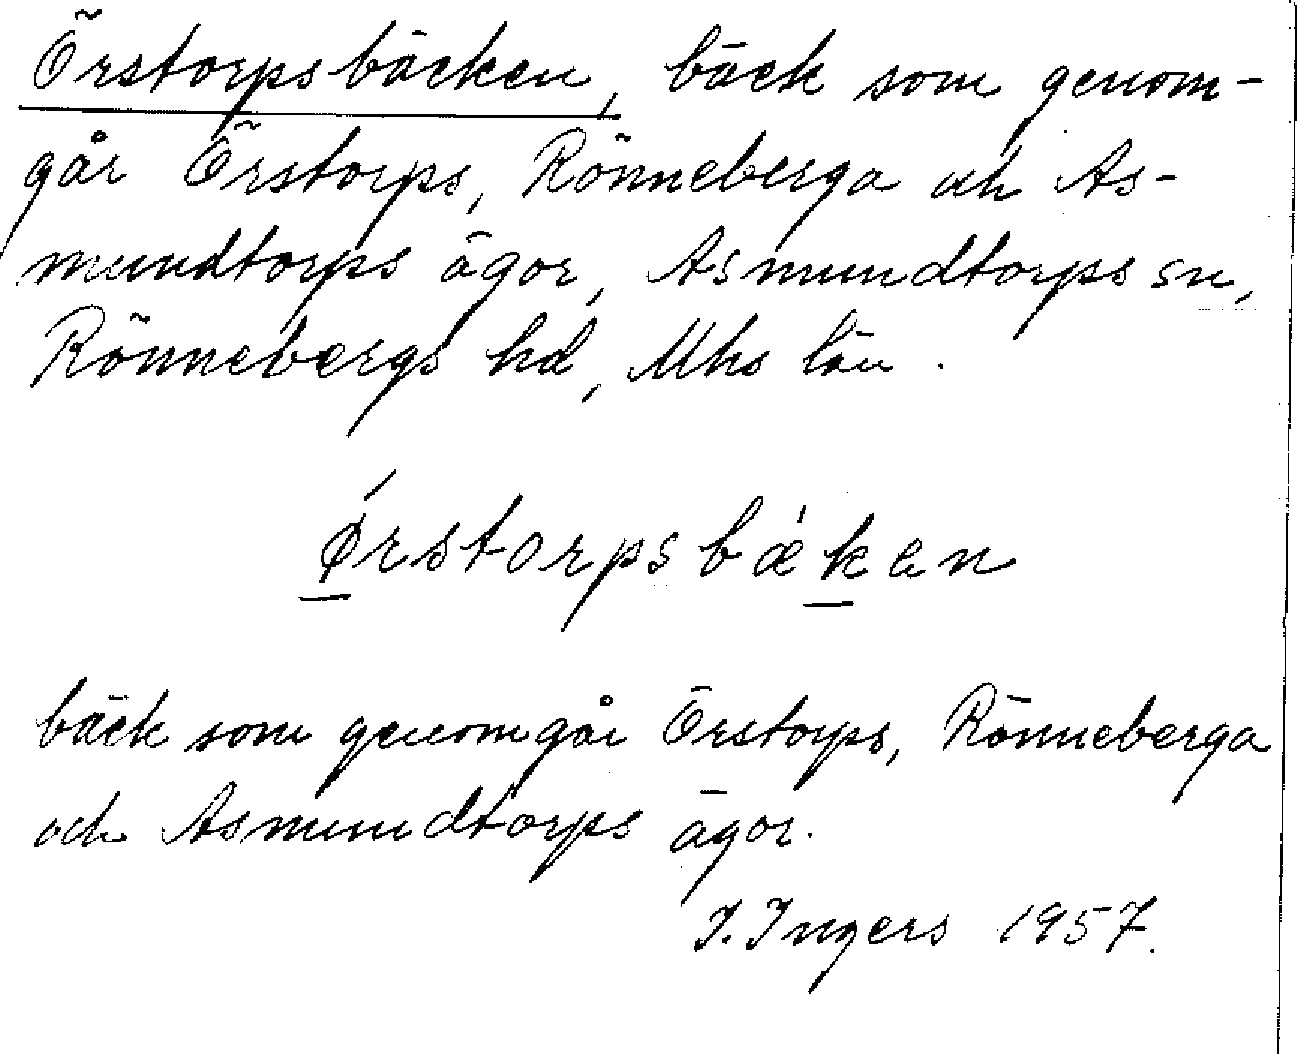 Örstorpsbäcken, bäck som genom-
går Örstorps, Rönneberga och As-
mundtorps ägor, Asmundtorps sn,
Rönnebergs hd, Mhs län.
ǿrstorpsbæken
bäck som genomgår Örstorps, Rönneberga
och Asmundtorps ägor.
I. Ingers 1957.